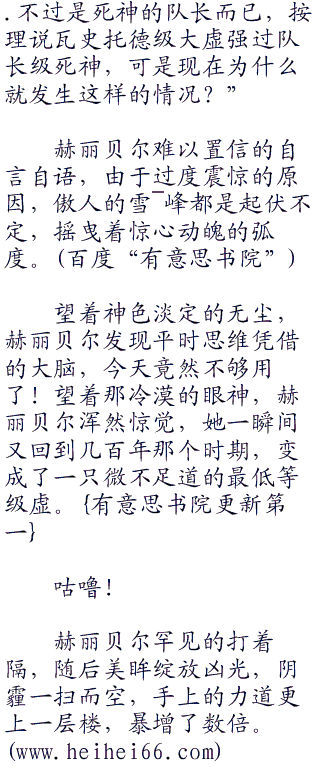 .不过是死神的队长而已，按
理说瓦史托德级大虚强过队
长级死神，可是现在为什么
就发生这样的情况？”
赫丽贝尔难以置信的自
言自语，由于过度震惊的原
因，傲人的雪¯峰都是起伏不
定，摇曳着惊心动魄的弧
度。(百度“有意思书院”)
望着神色淡定的无尘，
赫丽贝尔发现平时思维凭借
的大脑，今天竟然不够用
了！望着那冷漠的眼神，赫
丽贝尔浑然惊觉，她一瞬间
又回到几百年那个时期，变
成了一只微不足道的最低等
级虚。{有意思书院更新第
一}
咕噜！
赫丽贝尔罕见的打着
隔，随后美眸绽放凶光，阴
霾一扫而空，手上的力道更
上一层楼，暴增了数倍。
(www.heihei66.com)